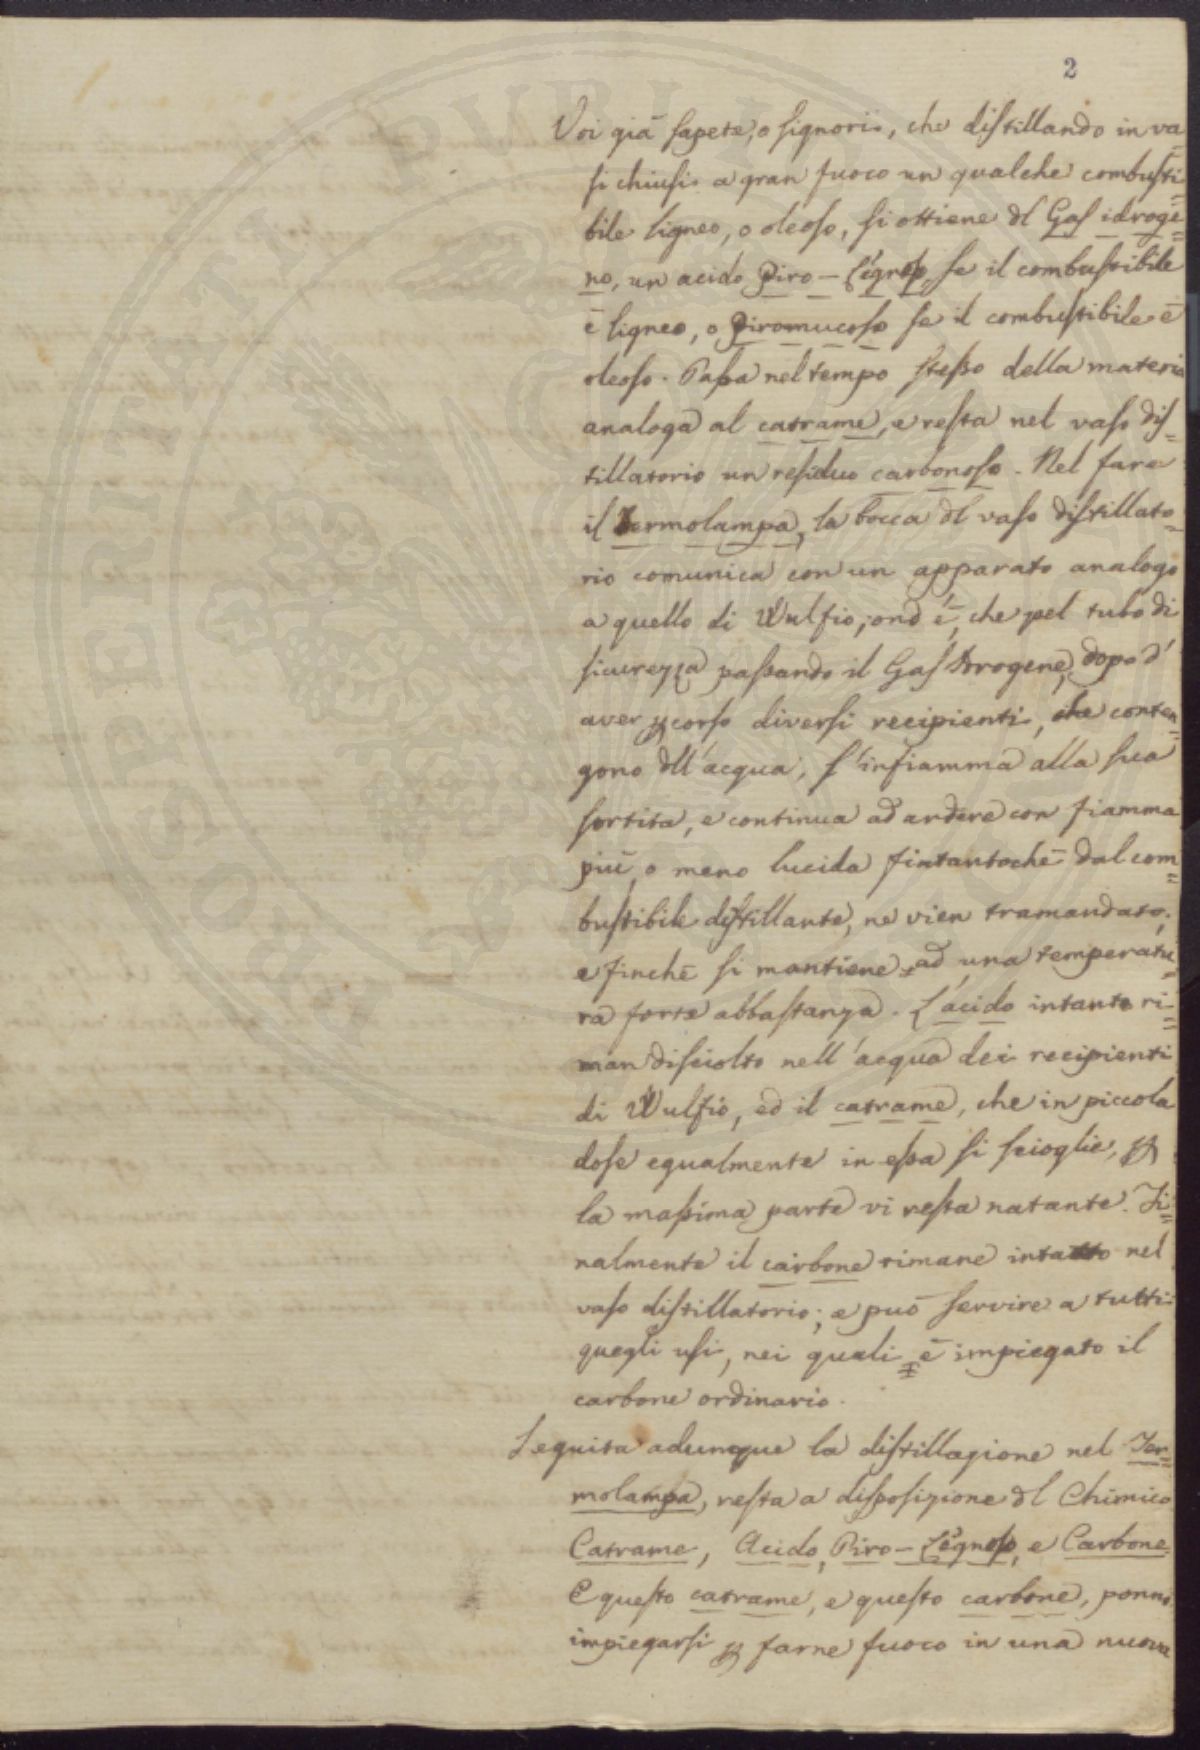 2
Voi già sapete, o signori, che distillando in va=
si chiusi a gran fuoco un qualche combusti=
bile ligneo, o oleoso, si ottiene dl Gas idroge=
no, un acido Piro-Légnoso, se il combustibile
è ligneo, o Piromucoso se il combustibile è
oleoso. Passa nel tempo stesso della materia
analoga al catrame, e resta nel vaso dis=
tillatorio un residuo carbonoso. Nel fare
il Termolampa, la bocca dl vaso distillato=
rio comunica con un apparato analogo
a quello di Wulfio; ond'è, che pel tubo di
sicurezza passando il Gas Idrogene, dopo d'
aver pcorso diversi recipienti, che conten=
gono dll'acqua, s'infiamma alla sua
sortita, e continua ad ardere con fiamma
più, o meno lucida fintantochè dal com=
bustibile distillante, ne vien tramandato;
e finchè si mantiene ad una temperatu=
ra forte abbastanza. L'acido intanto ri=
man disciolto nell'acqua dei recipienti
di Wulfio, ed il catrame, che in piccola
dose egualmente in essa si scioglie, p
la massima parte vi resta natante. Fi=
nalmente il carbone rimane intatto nel
vaso distillatorio; e può servire a tutti
quegli usi, nei quali è impiegato il
carbone ordinario.
Seguita adunque la distillazione nel Ter=
molampa, resta a disposizione dl Chimico
Catrame, Acido, Piro-Légnoso, e Carbone.
E questo catrame, e questo carbone, ponno
impiegarsi p farne fuoco in una nuova